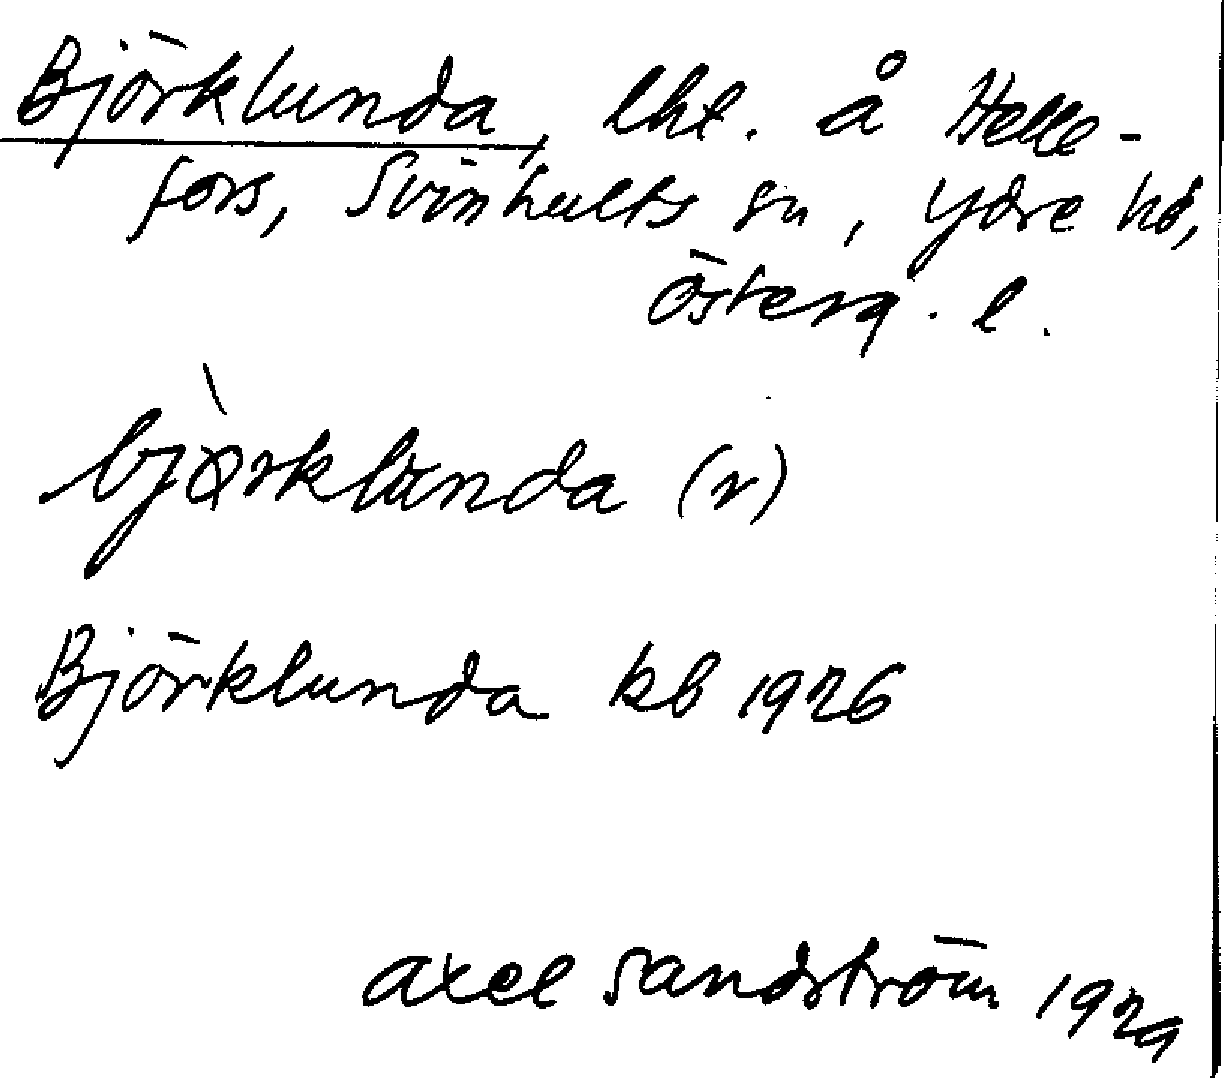 Björklunda, lht. å Helle-
fors, Svinhults sn, Ydre hd,
Österg. l.
bjørklunda (r)
Björklunda kb 1926
Axel Sandström 1929